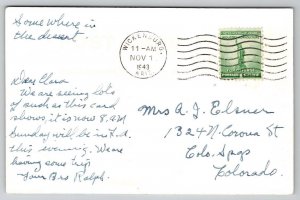 Some where in
the desert.
Dear Clara
We are seeing lots
of such as this card
shows, it is now 8 AM
Sunday will be in L.A.
this evening. We are
having some trip
Your Bro Ralph.
WICKENBURG,
11-AM
NOV 1
1943
ARIZ.
Mrs A. J. Elsner
1324 N. Corona St
Colo. Spgs
Colorado.